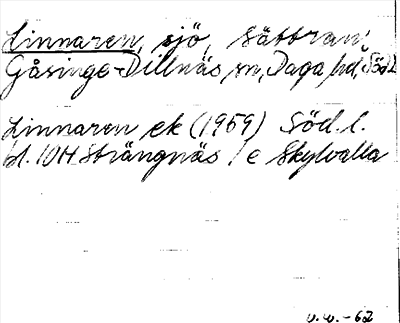 Linnaren, sjö, Sättran,
Gåsinge-Dillnäs sn, Daga hd, Södl
Linnaren ek (1959) Söd. l.
bl. 10H Strängnäs / e Skylvalla
v.w.-62